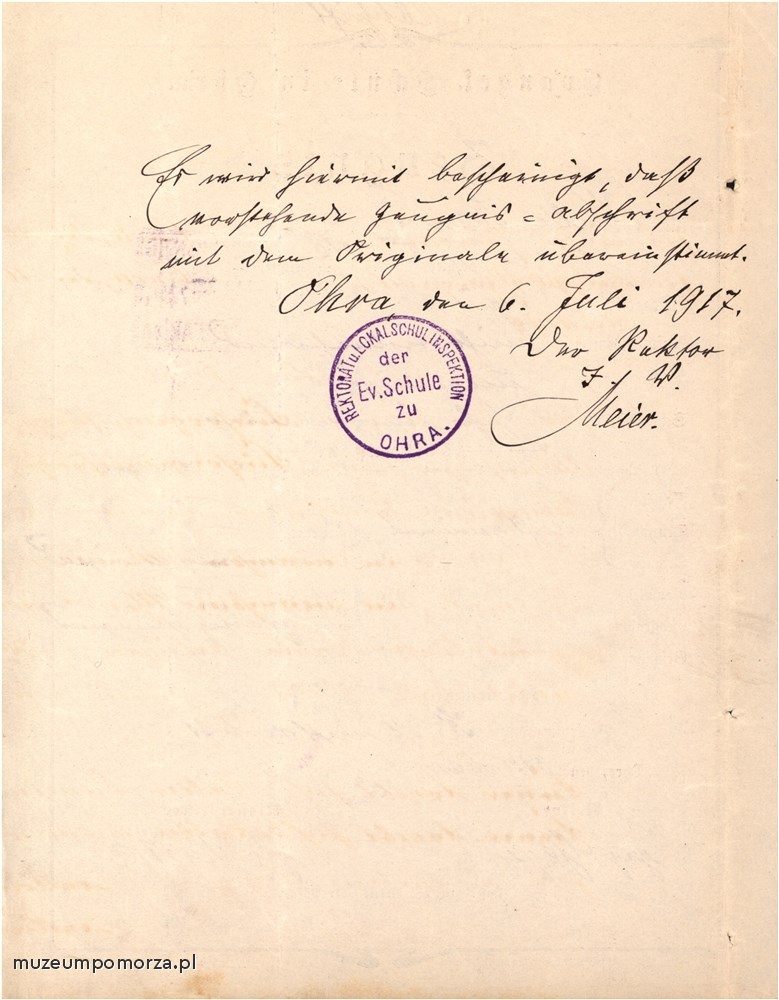 Es wird hiermit bescheinigt, daß
vorstehende Zeugnis = Abschrift
mit dem Originale übereinstimmt.
Ohra den 6. Juli 1917.
Der Rektor
I. V.
Meier.
REKTORAT u. LOKALSCHULINSPEKTION
der
Ev. Schule
zu
OHRA.
muzeumpomorza.pl